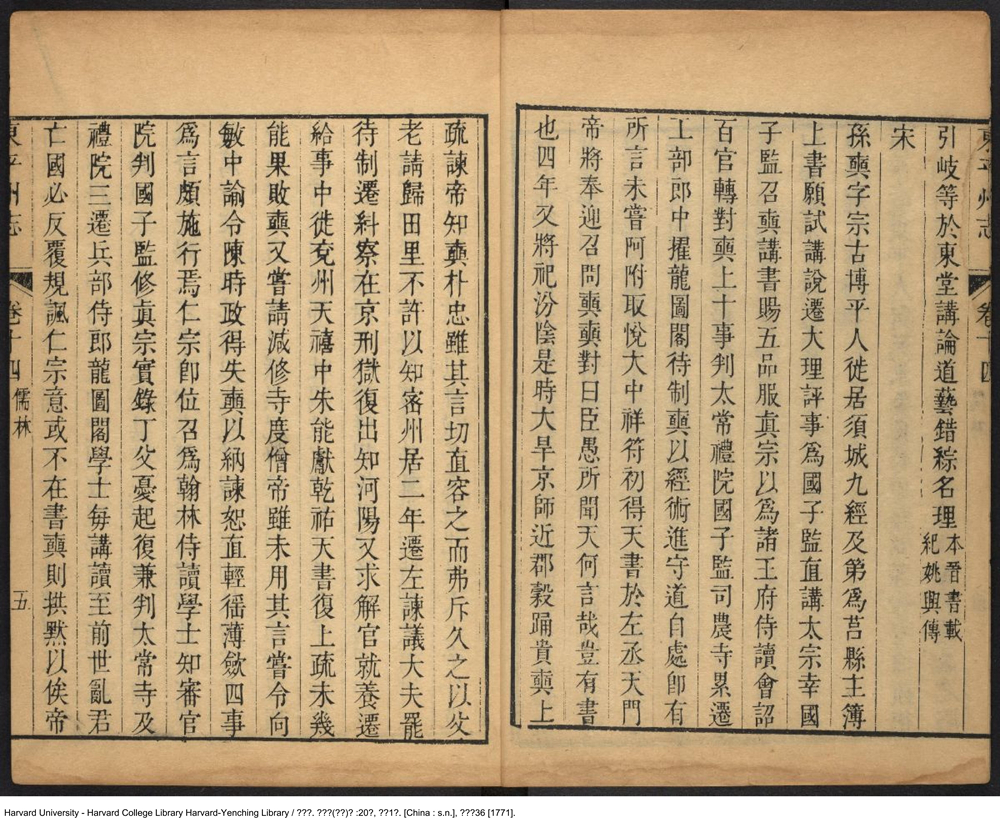 東平州志
卷十四
引岐等於東堂講論道藝錯綜名理
本晉書載
紀姚興傳
宋
孫奭字宗古博平人徙居須城九經及第爲莒縣主簿
上書願試講說遷大理評事爲國子監直講太宗幸國
子監召奭講書賜五品服真宗以爲諸王府侍讀會詔
百官轉對奭上十事判太常禮院國子監司農寺累遷
工部郎中擢龍圖閣待制奭以經術進守道自處卽有
所言未嘗阿附取悅大中祥符初得天書於左丞天門
帝將奉迎召問奭奭對曰臣愚所聞天何言哉豈有書
也四年又將祀汾陰是時大旱京師近郡穀踊貴奭上
疏諫帝知奭朴忠雖其言切直容之而弗斥久之以父
老請歸田里不許以知密州居二年遷左諫議大夫罷
待制遷糾察在京刑獄復出知河陽又求解官就養遷
給事中徙兗州天禧中朱能獻乾祐天書復上疏未幾
能果敗奭又嘗請減修寺度僧帝雖未用其言嘗令向
敏中諭令陳時政得失奭以納諫恕直輕徭薄斂四事
爲言頗施行焉仁宗卽位召爲翰林侍讀學士知審官
院判國子監修真宗實錄丁父憂起復兼判太常寺及
禮院三遷兵部侍郎龍圖閣學士每講讀至前世亂君
亡國必反覆規諷仁宗意或不在書奭則拱默以俟帝
東平州志
卷十四
儒林
五
Harvard University - Harvard College Library Harvard-Yenching Library / ???. ???(??)? :20?, ??1?. [China : s.n.], ???36 [1771].